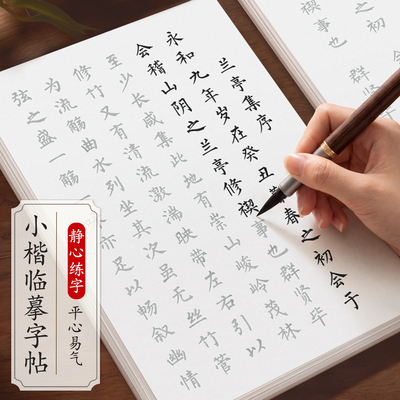 兰亭集序
永和九年岁在癸丑暮春之初会于
会稽山阴之兰亭修禊事也群贤毕
至少长咸集此地有崇山峻岭茂林
修竹又有清流激湍映带左右引以
为流觞曲水列坐其次虽无丝竹管
弦之盛一觞一咏亦足以畅叙幽情
之初
群贤
禊事也
静心练字
平心易气
小楷临摹字帖